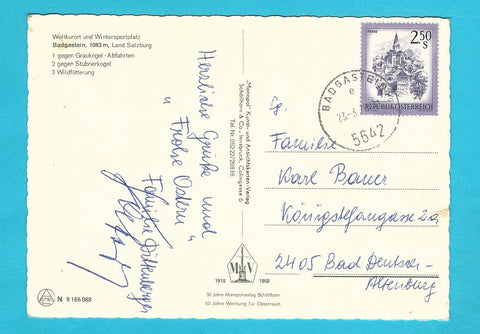 Weltkurort und Wintersportplatz
Badgastein, 1083 m, Land Salzburg
1 gegen Graukogel-Abfahrten
2 gegen Stubnerkogel
3 Wildfütterung
Herzliche Grüße und
u Frohe Ostern
Familie
„Monopol" Kunst- und Ansichtskarten-Verlag
Schöllhorn & Co., Innsbruck, Colingasse 6
Tel. Nr. 05222/29816
2.50
S
REPUBLIK ÖSTERREICH
BADGASTEIN
e
23.-3.
5642
Fg.
Familie
Karl Bauer
Königstetfangasse 2a
2405 Bad Deutsch-
Altenburg
M V
1918 1968
50 Jahre Monopolverlag Schöllhorn
50 Jahre Werbung für Österreich
N 9 166 068